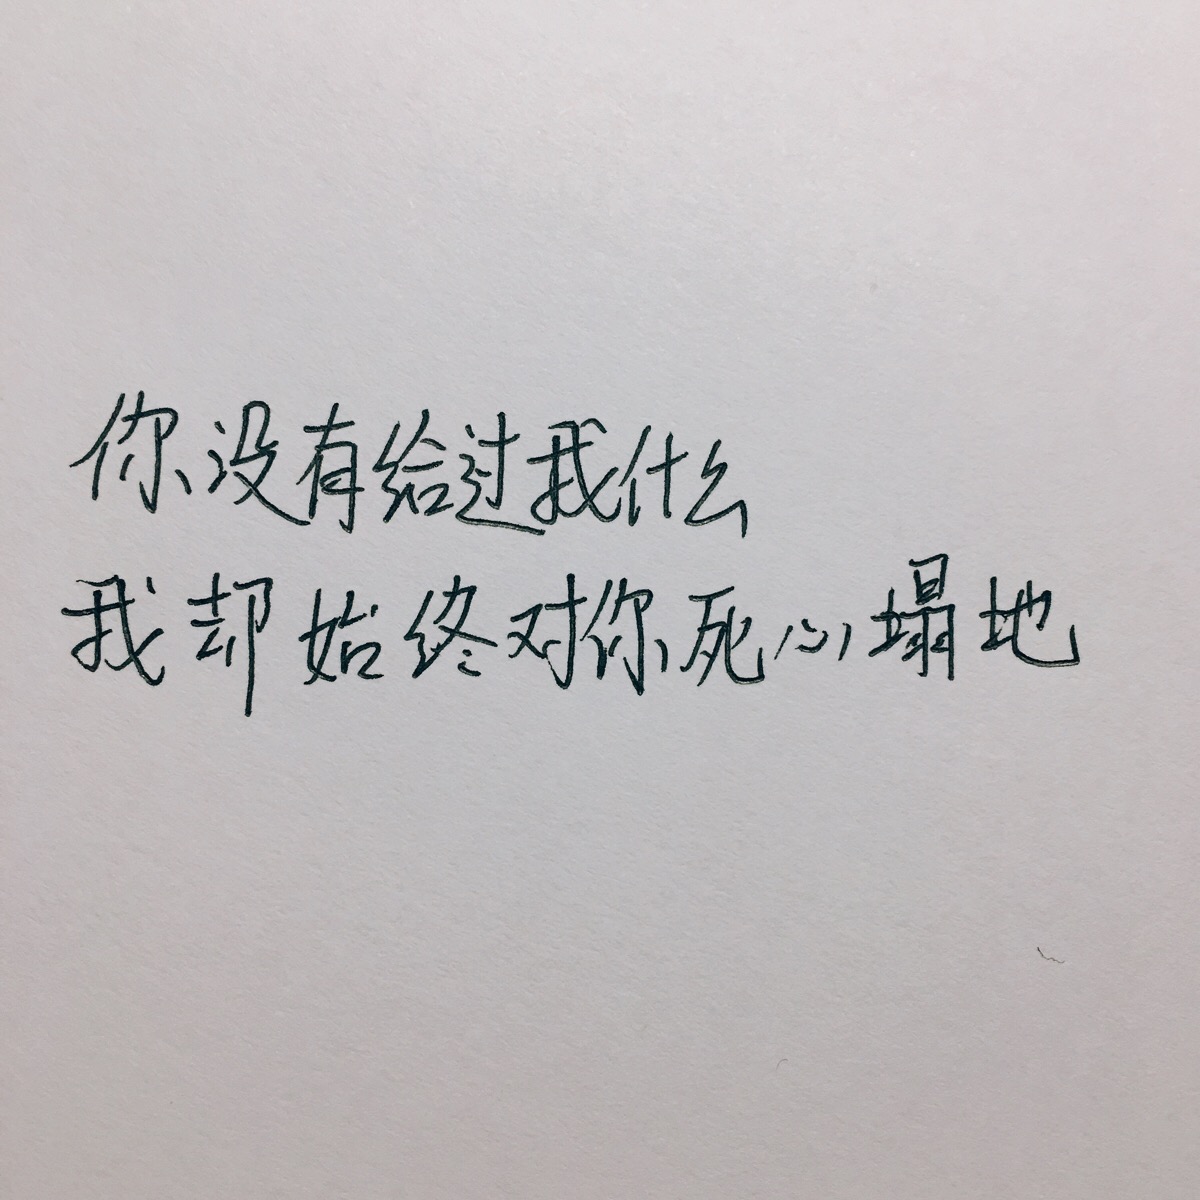 你没有给过我什么
我却始终对你死心塌地